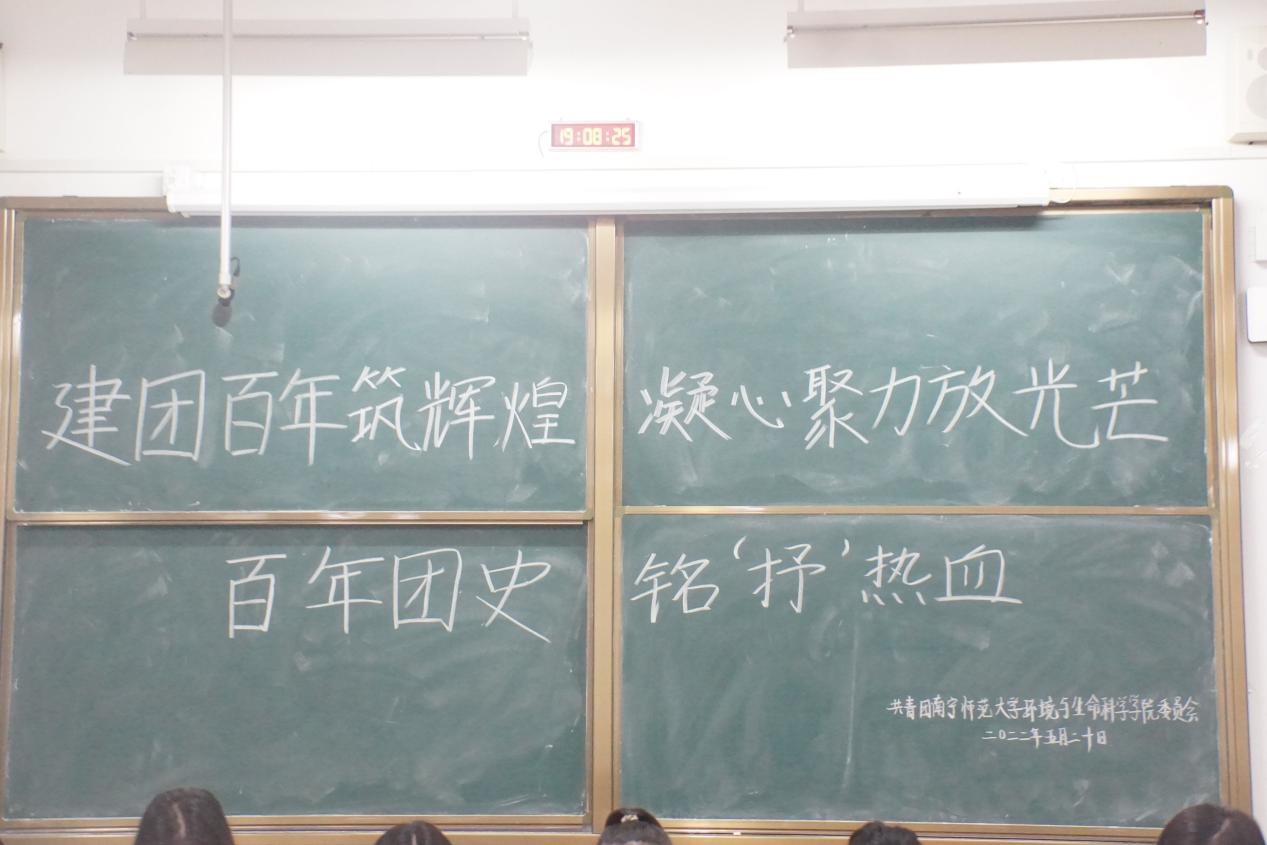 19:08:25
建团百年筑辉煌 凝心聚力放光芒
百年团史 铭‘抒’热血
共青团南宁师范大学环境与生命科学学院委员会
二〇二二年五月二十日